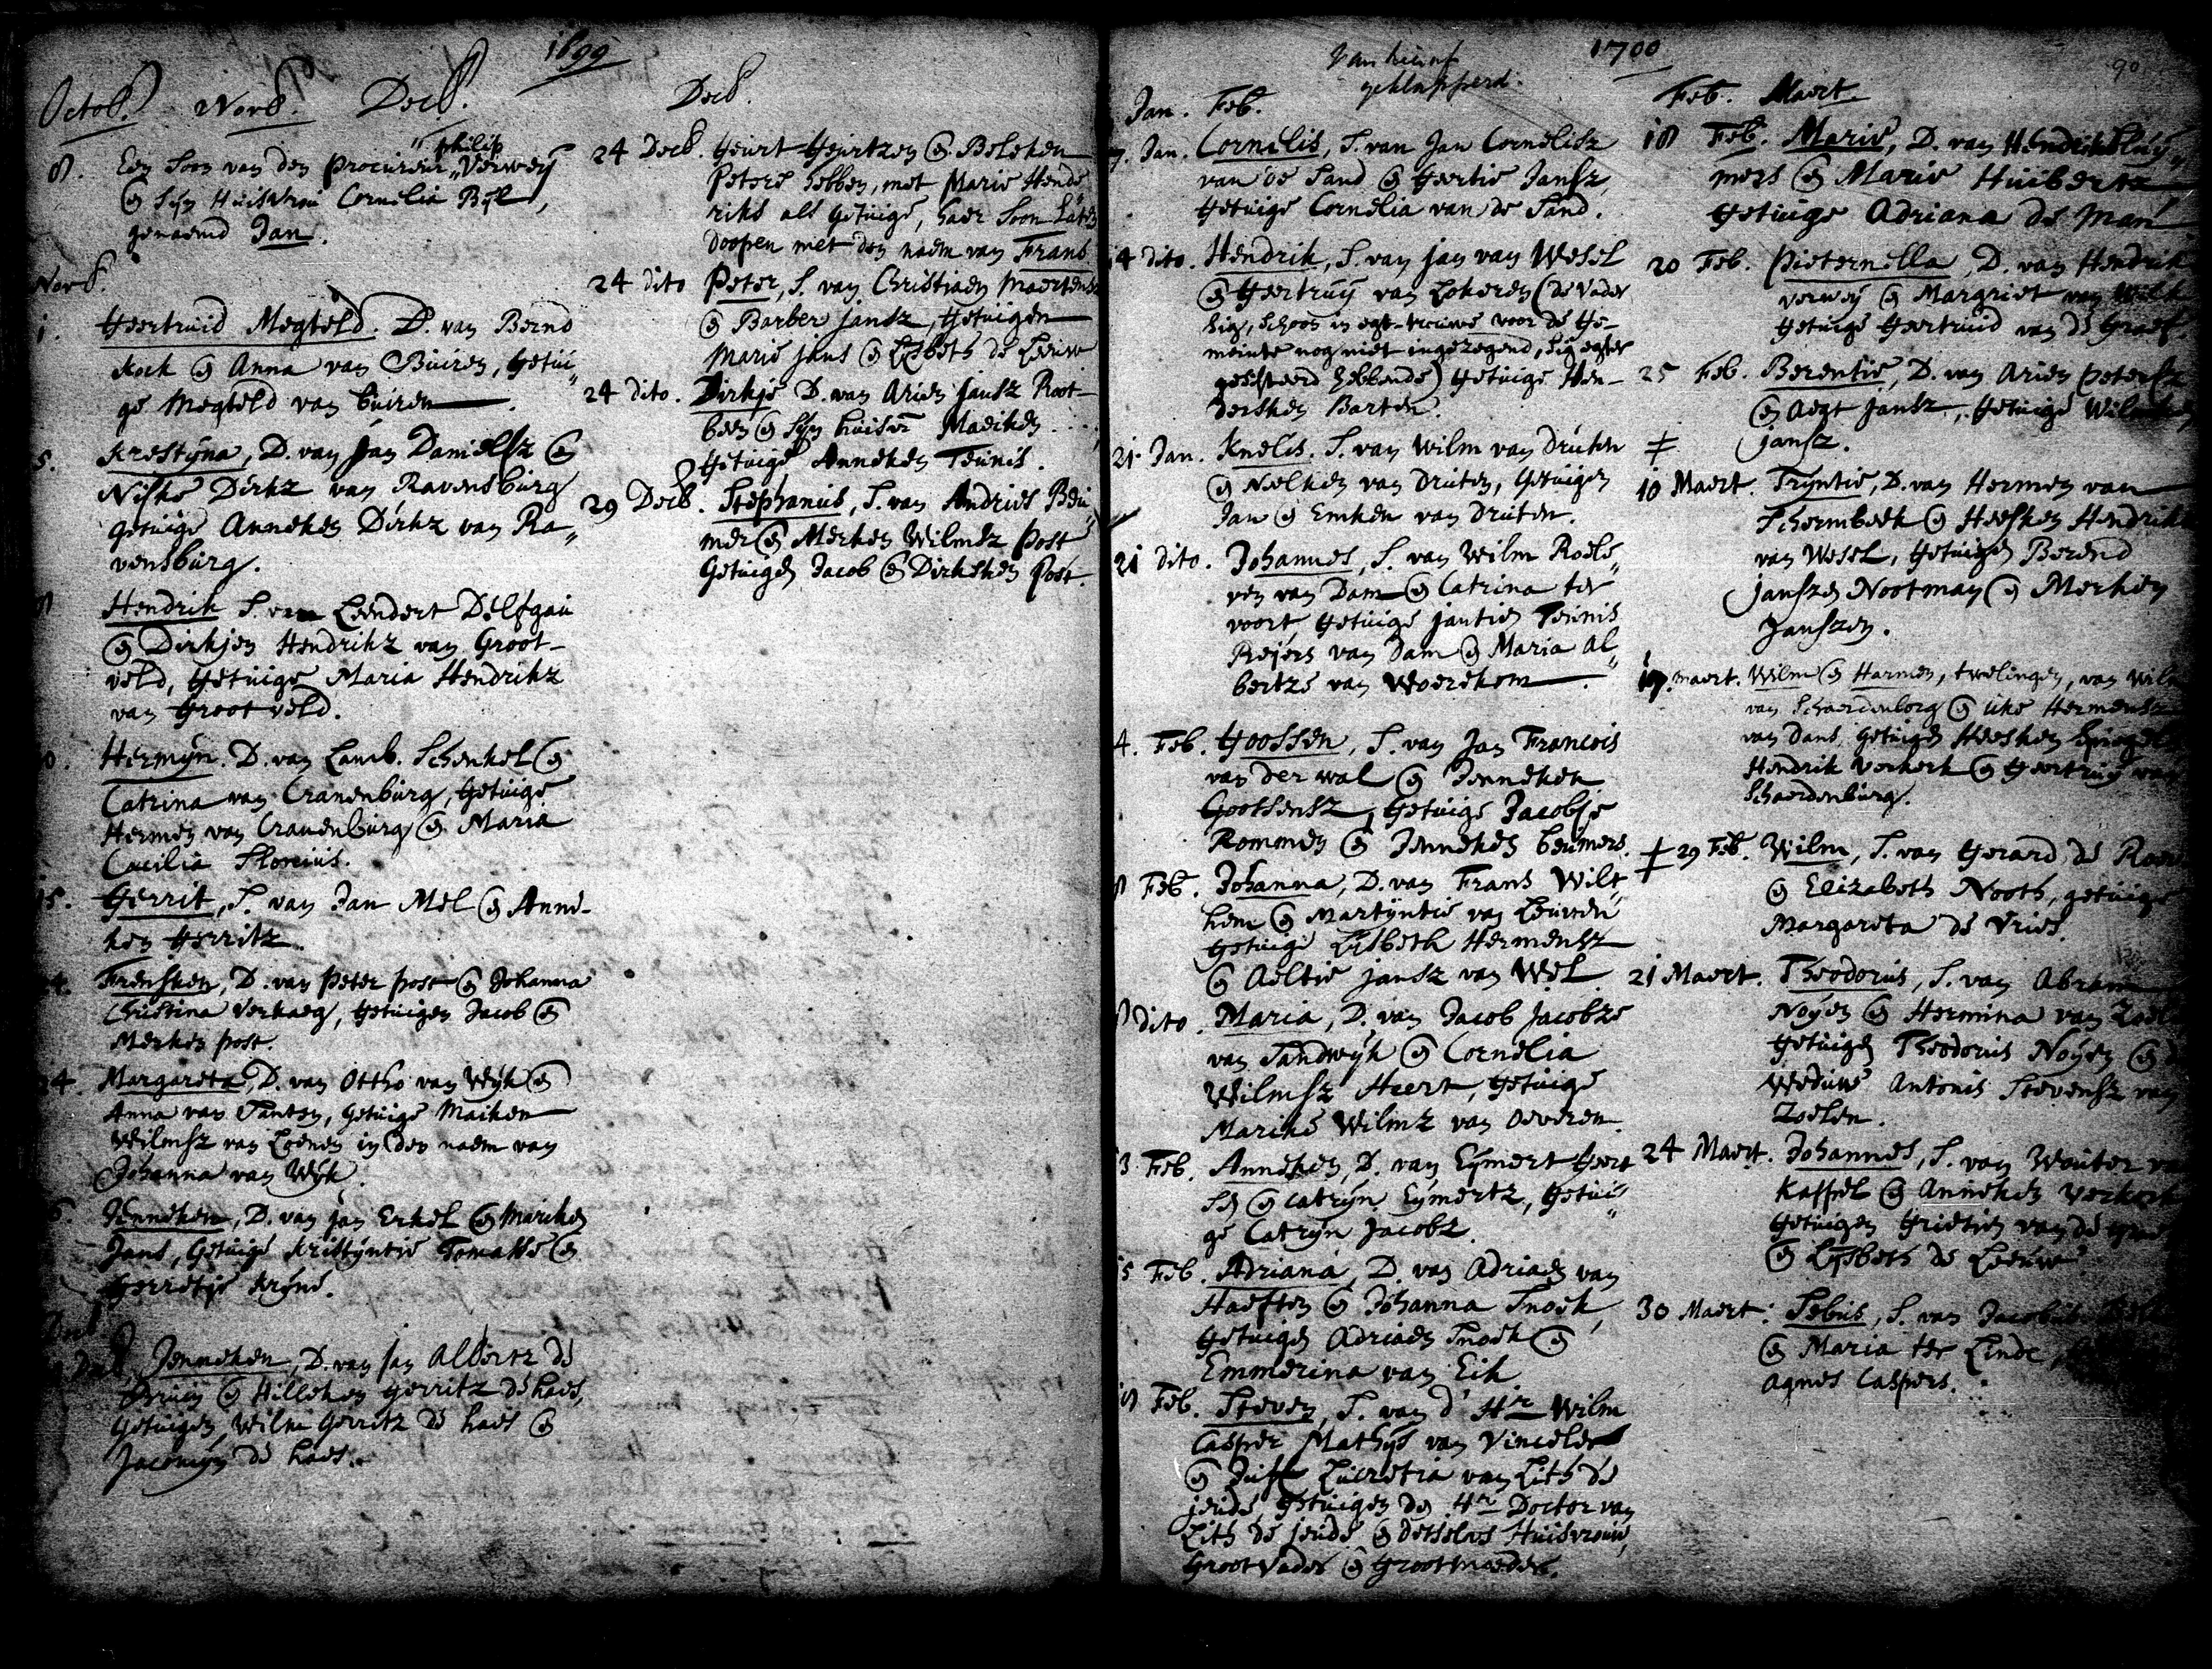 1699
Octob. Novb. Decb.
8. Een Soon van den Procureur „ philip Verweij
en Sijn Huisvrou Cornelia Bijl,
genaemd Jan.
Novb.
1. Geertruid Megteld. D. van Bernd
Kock en Anna van Buiren, Getui„
ge Megteld van buiren.
5. Krestyna, D. van Jan Danielsz en
Niske Dirkz van Ravensburg
Getuige Anneken Dirkz van Ra„
vensburg.
Hendrik S. van Leendert Delfgau
en Dirkjen Hendrikz van Groot-
veld, Getuige Maria Hendrikz
van Grootveld.
Hermijn. D. van Lamb. Schenkel en
Catrina van Cranenburg, Getuige
Hermen van Cranenburg en Maria
Cacilia Florenius.
15. Gerrit, S. van Jan Mel en Anne-
ken Gerritz.
Frensken, D. van Peter post en Johanna
Christina Verhaeg, Getuigen Jacob en
Merken post.
24. Margareta, D. van Ottho van Wijk en
Anna van Santen, Getuige Maiken
Wilmsz van Loenen in den naem van
Johanna van Wijk.
Jenneken, D. van Jan Erkel en Mariken
Jans, Getuige Kristyntie Tomasse en
Gerretje Krijns.
Decb.
Jenneken, D. van Jan Albertz de
Bruin en Hilleken Gerritz de haes,
Getuigen Wilm Gerritz de haes en
Jacomijn de haes.
Decb.
24 Decb. Geurt Geurtzen en Beleken
Peters hebben, met Marie Hend„
riks als Getuige, haer Soon Laten
doopen met den naem van Frans
24 dito Peter, S. van Christiaen Maertensz
en Barber Jansz, Getuigen
Marie Jans en Lijsbeth de Leeuw
24 dito. Dirkje D. van Arien Jansz Root-
been en Sijn huisvr. Maeiken ....
Getuige Anneken Teunis.
29 Decb. Stephanus, S. van Andries Beu„
mer en Merken Wilmsz Post
Getuigen Jacob en Dirksken Post.
1700
90
Van hier af
geklapperd.
Jan. Feb.
7. Jan. Cornelis, S. van Jan Cornelisz
van de Sand en Geertie Jansz,
Getuige Cornelia van de Sand.
14 dito. Hendrik, S. van Jan van Wesel
en Geertruij van Lokeren (de vader
sig, schoon in egt-trouwe voor de Ge-
meinte nog niet ingezegend, sig egter
gesisteerd hebbende) Getuige Hen-
dersken Barten.
21 Jan. Knelis. S. van Wilm van Druten
en Neelken van Druten, Getuigen
Jan en Emken van Druten.
21 dito. Johannes, S. van Wilm Roelo„
ven van Dam en Catrina ter
voort, Getuige Jantien Teunis
Reijers van Dam en Maria Al„
bertze van Woerekom.
4. Feb. Goossen, S. van Jan Francois
van der wal en Jenneken
Goossensz, Getuige Jacobje
Rommen en Jenneken beumers.
8 Feb. Johanna, D. van Frans Wilt„
hem en Martijntie van Leuven
Getuige Lijsbeth Hermensz
en Aeltie Jansz van Wel.
dito. Maria, D. van Jacob Jacobze
van Sandwijk en Cornelia
Wilmsz Heert, Getuige
Marike Wilmz van Oeveren.
Feb. Anneken, D. van Eijmert Geert
sen en Catrijn Eijmertz, Getui„
ge Catrijn Jacobz.
Feb. Adriana, D. van Adriaen van
Haeften en Johanna Snoek,
Getuigen Adriaen Snoek en
Emmerina van Eik
Feb. Steven, S. van d' Hr. Wilm
Casper Mathijs van Vinceler
en Juffr Lucretia van Lith de
jeude Getuigen den Hr. Doctor van
Lith de jeude en desselvs Huisvrouw,
Grootvader en Grootmoeder.
Feb. Maert.
18 Feb. Marie, D. van Hendrik Sluij„
mers en Marie Huibertz
Getuige Adriana de Man
20 Feb. Pieternella, D. van Hendrik
verweij en Margriet van Wilk
Getuige Geertruid van de Graef.
25 Feb. Berentie, D. van Arien Petersz
en Aegt Jansz, Getuige Wilmken
Jansz.
10 Maert. Trijntie, D. van Hermen van
Schermbeek en Heesken Hendriks
van Wesel, Getuigen Berend
Janszen Nootman en Merken
Janszen.
17. maert. Wilm en Harmen, twelingen, van Wilm
van Schaerdenborg en Uike Hermensz
van Dans, Getuigen Heesken Spiegels
Hendrik Verkerk en Geertruij van
Schaerdenburg.
29 Feb. Wilm, S. van Gerard de Raed
en Elizabeth Nooth, getuige
Margareta de Vries.
21 Maert. Theodorus, S. van Abram
Noijen en Hermina van Zoelen
Getuigen Theodorus Noijen en de
Weduwe Antonis Stevensz van
Zoelen.
24 Maert. Johannes, S. van Wouter van
Kassel en Anneken Verkerk
Getuigen Grietien van de
en Lijsbeth de Leeuw
30 Maert. Sebus, S. van Jacobus
en Maria ter Linde
Agnes Caspers.